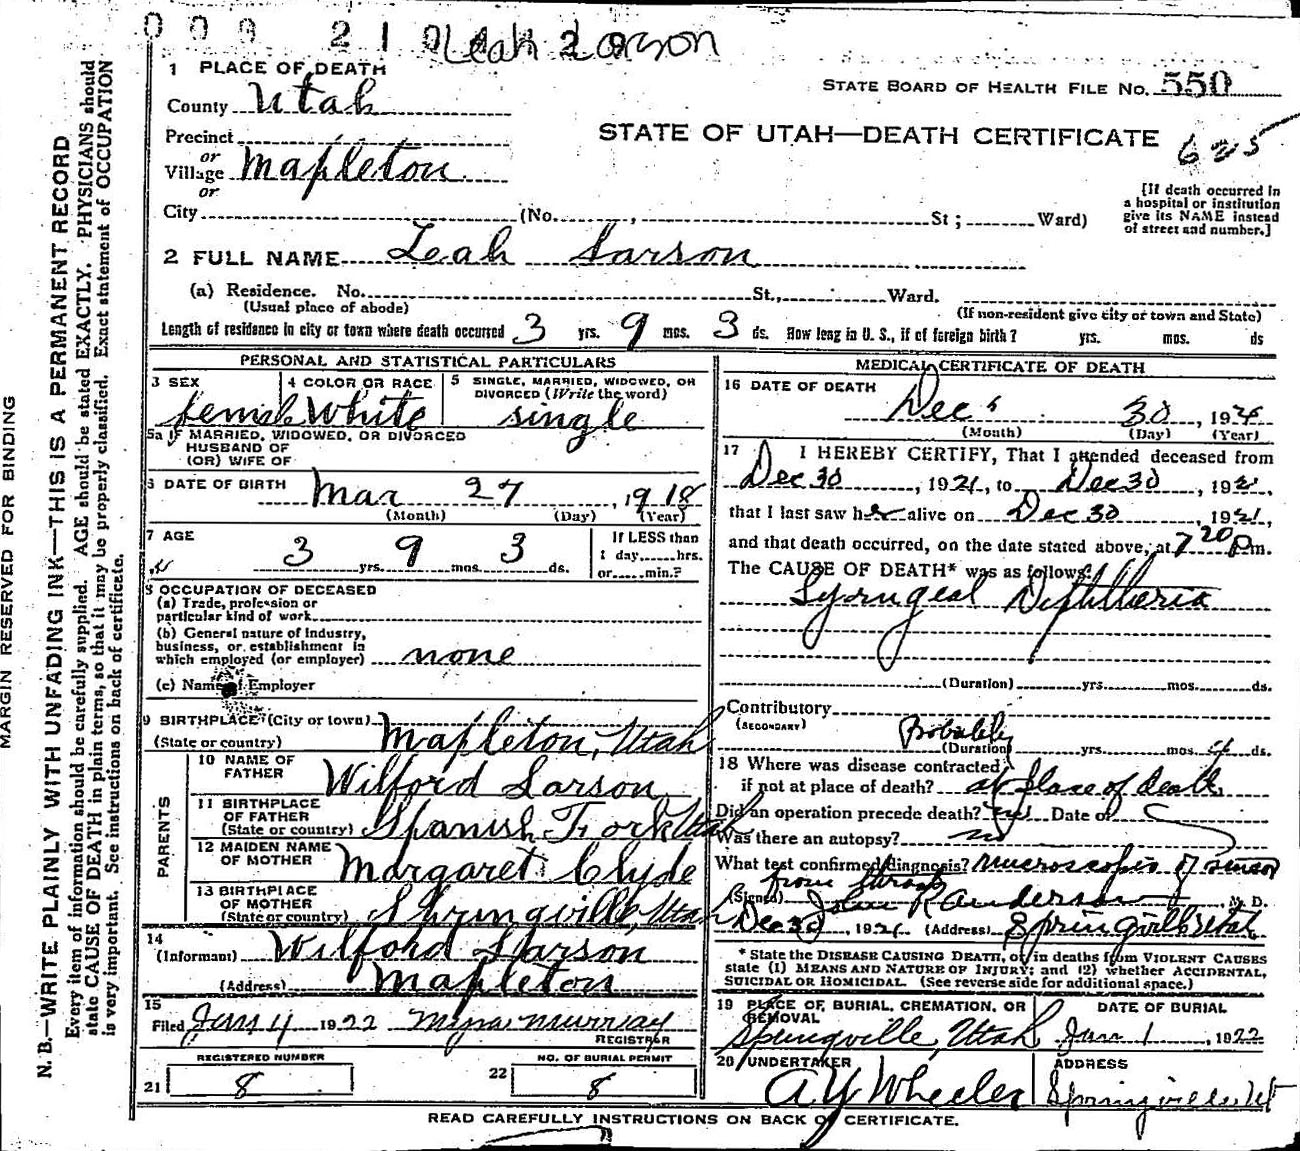 Leah Larson
1 PLACE OF DEATH
STATE BOARD OF HEALTH FILE NO. 550
County Utah
STATE OF UTAH—DEATH CERTIFICATE 625
Precinct
or
Village Mapleton
or
City (No. , St ; Ward)
[If death occurred in
a hospital or institution
give its NAME instead
of street and number.]
2 FULL NAME Leah Larson
(a) Residence. No. St., Ward.
(Usual place of abode) (If non-resident give city or town and State)
Length of residence in city or town where death occurred 3 yrs. 9 mos. 3 ds. How long in U. S., if of foreign birth? yrs. mos. ds
PERSONAL AND STATISTICAL PARTICULARS
3 SEX 4 COLOR OR RACE 5 SINGLE, MARRIED, WIDOWED, OR
DIVORCED (Write the word)
female White single
5a IF MARRIED, WIDOWED, OR DIVORCED
HUSBAND OF
(OR) WIFE OF
6 DATE OF BIRTH Mar 27, 1918
(Month) (Day) (Year)
7 AGE 3 yrs. 9 mos. 3 ds.
If LESS than
1 day......hrs.
or......min.?
8 OCCUPATION OF DECEASED
(a) Trade, profession or
particular kind of work
(b) General nature of Industry,
business, or establishment in
which employed (or employer) none
(c) Name of Employer
9 BIRTHPLACE (City or town)
(State or country) Mapleton, Utah
PARENTS
10 NAME OF
FATHER Wilford Larson
11 BIRTHPLACE
OF FATHER
(State or country) Spanish Fork Utah
12 MAIDEN NAME
OF MOTHER Margaret Clyde
13 BIRTHPLACE
OF MOTHER
(State or country) Springville, Utah
14
(Informant) Wilford Larson
(Address) Mapleton
15
Filed Jan 4 1922 Myra Murray
REGISTRAR
REGISTERED NUMBER NO. OF BURIAL PERMIT
21 8 22 8
MEDICAL CERTIFICATE OF DEATH
16 DATE OF DEATH
Dec 30, 192
(Month) (Day) (Year)
17 I HEREBY CERTIFY, That I attended deceased from
Dec 30, 1921, to Dec 30, 1921,
that I last saw her alive on Dec 30, 1921,
and that death occurred, on the date stated above, at 7 20 P m.
The CAUSE OF DEATH* was as follows:
Lyrngeal Diptheria
(Duration) yrs. mos. ds.
Contributory
(SECONDARY) Probably
(Duration) yrs. mos. 4 ds.
18 Where was disease contracted
if not at place of death? at place of death
Did an operation precede death? Date of
Was there an autopsy? no
What test confirmed diagnosis? microscopic of smear
from throat
(Signed) John R Anderson M. D.
Dec 30, 1921 (Address) Springville Utah
* State the DISEASE CAUSING DEATH, or in deaths from VIOLENT CAUSES
state (1) MEANS AND NATURE OF INJURY; and (2) whether ACCIDENTAL,
SUICIDAL OR HOMICIDAL. (See reverse side for additional space.)
19 PLACE OF BURIAL, CREMATION, OR
REMOVAL DATE OF BURIAL
Springville, Utah Jan 1, 1922
20 UNDERTAKER ADDRESS
A Y Wheeler Springville Ut
READ CAREFULLY INSTRUCTIONS ON BACK OF CERTIFICATE.
MARGIN RESERVED FOR BINDING
N. B.—WRITE PLAINLY WITH UNFADING INK—THIS IS A PERMANENT RECORD
Every item of information should be carefully supplied. AGE should be stated EXACTLY. PHYSICIANS should
state CAUSE OF DEATH in plain terms, so that it may be properly classified. Exact statement of OCCUPATION
is very important. See instructions on back of certificate.